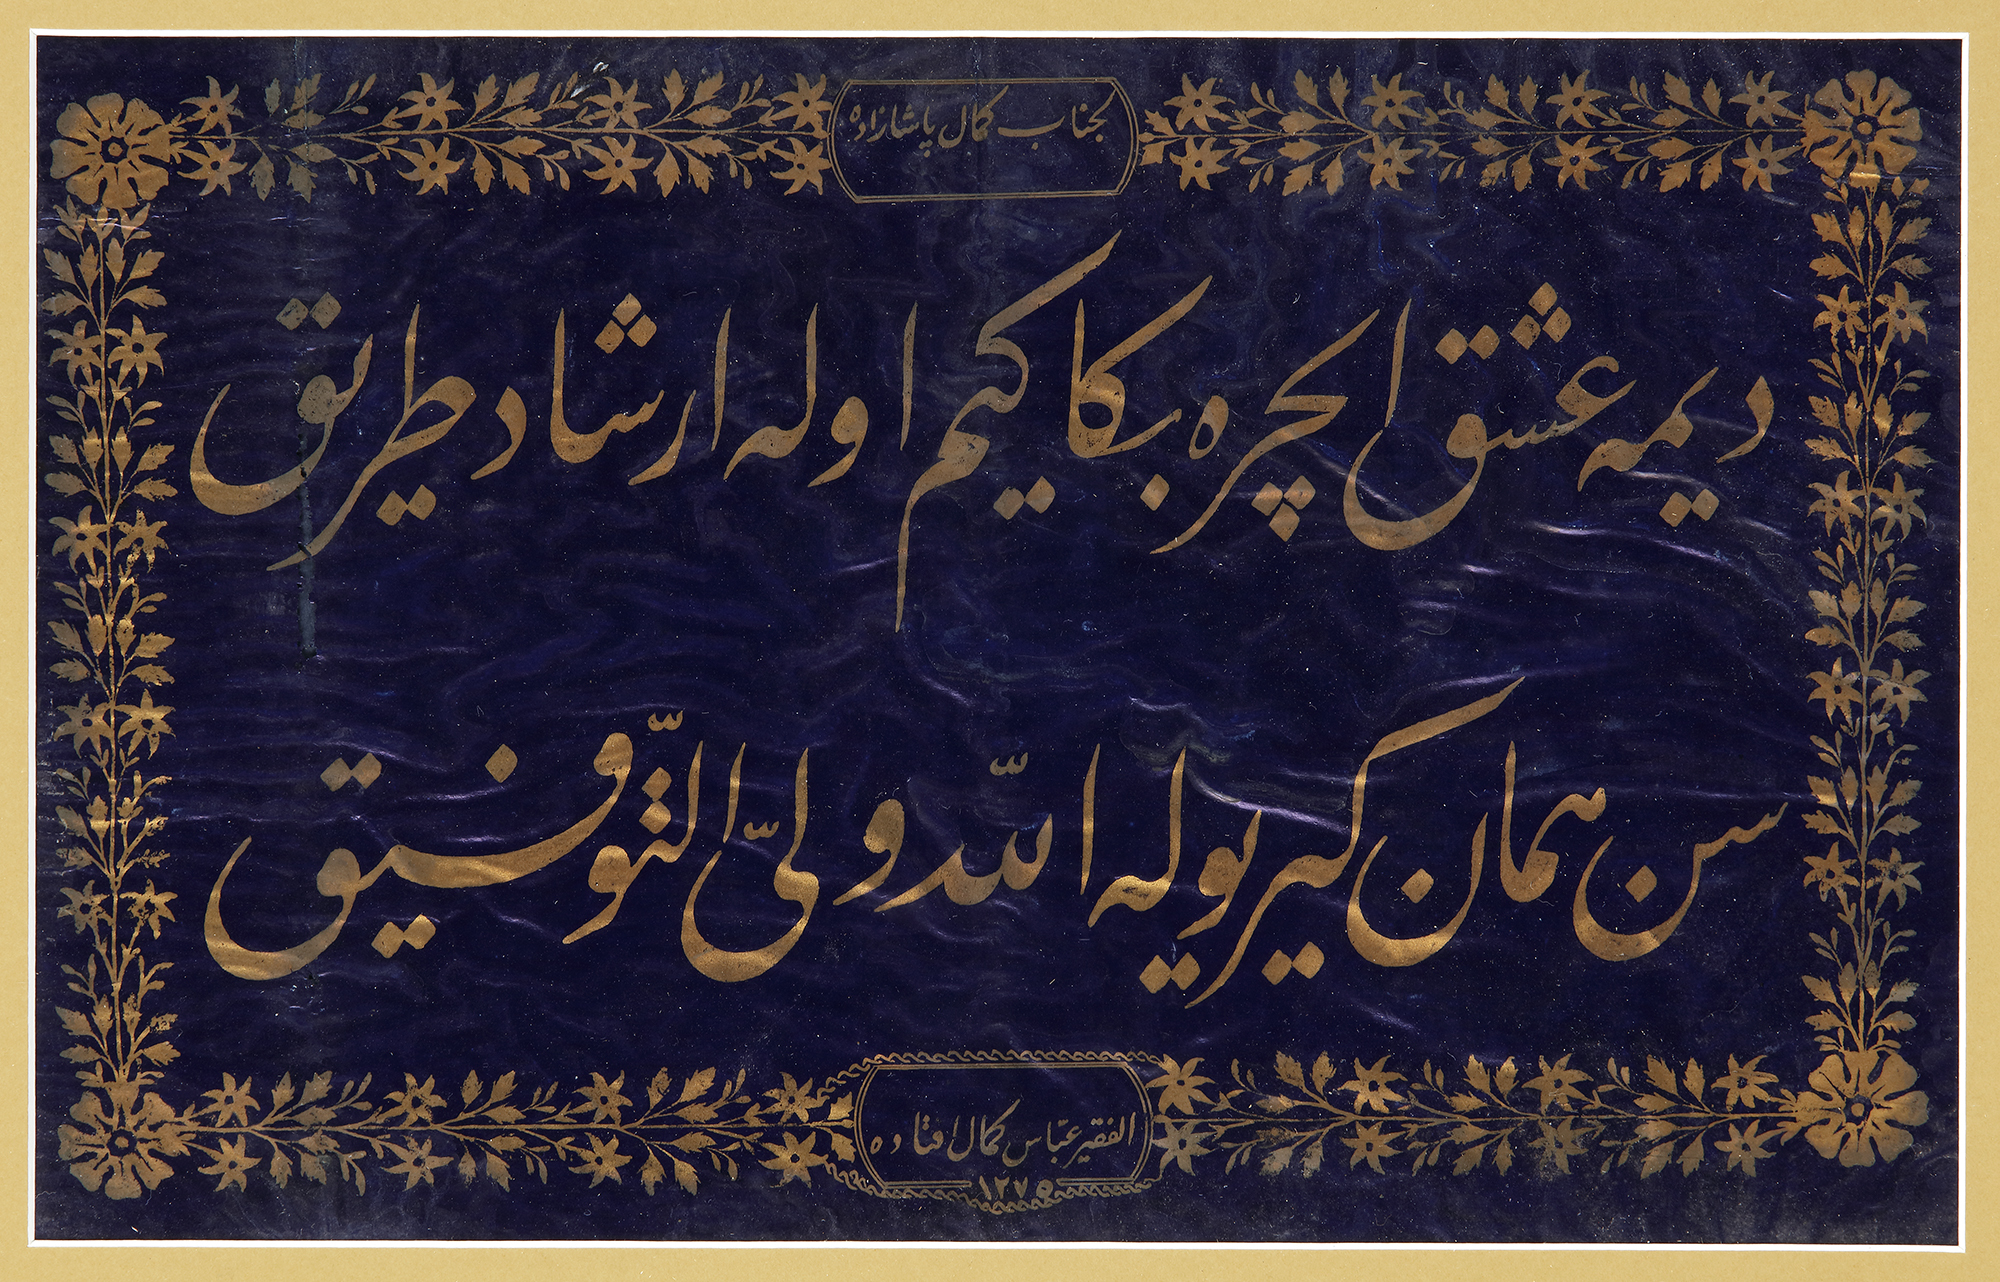 لجناب كمال پاشازاده
ديمه عشق ايچره بكا كيم اوله ارشاد طريق
سن همان كير يوليه الله ولىّ التّوفيق
الفقير عبّاس كمال افتاده
١٢٧٥